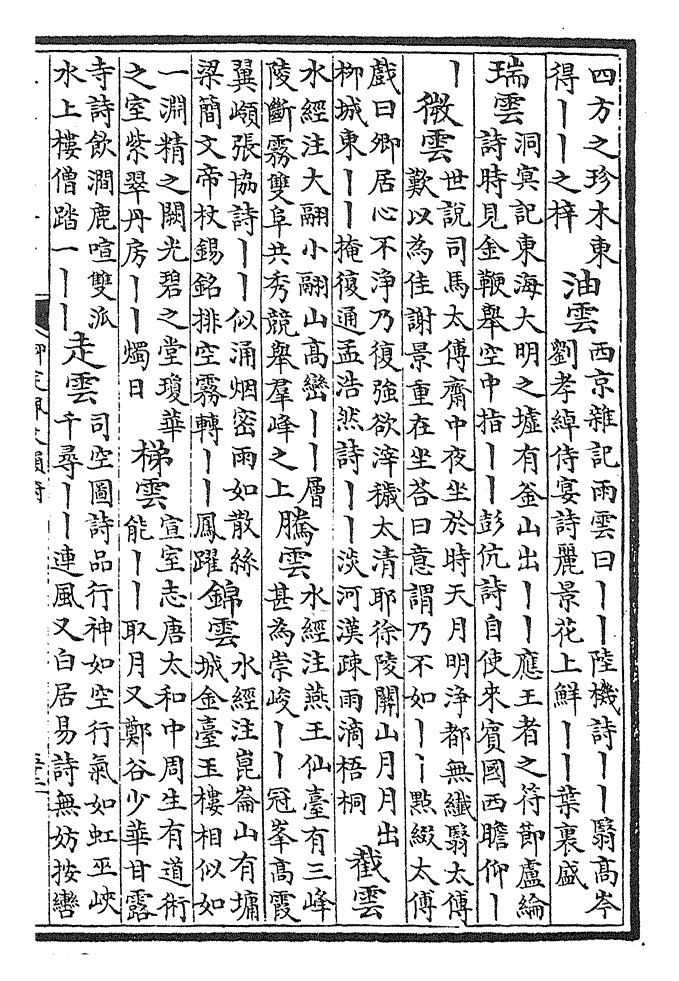 四方之珍木東
得丨丨之梓
油雲
西京雜記雨雲曰丨丨陸機詩丨丨翳高岑
劉孝綽侍宴詩麗景花上鮮丨丨葉裏盛
瑞雲
洞冥記東海大明之墟有釜山出丨丨應王者之符節盧綸
詩時見金鞭舉空中指丨丨彭伉詩自使來賓國西瞻仰丨
丨
微雲
世說司馬太傅齋中夜坐於時天月明浄都無纖翳太傅
歎以為佳謝景重在坐荅曰意謂乃不如丨丨點綴太傅
戲曰卿居心不浄乃復強欲滓穢太清耶徐陵關山月月出
柳城東丨丨掩復通孟浩然詩丨丨淡河漢疎雨滴梧桐
截雲
水經注大翮小翮山高巒丨丨層
陵斷霧雙阜共秀競舉羣峰之上
騰雲
水經注燕王仙臺有三峰
甚為崇峻丨丨冠峯高霞
翼嶺張協詩丨丨似涌烟密雨如散絲
梁簡文帝杖錫銘排空霧轉丨丨鳳躍
錦雲
水經注崑崙山有墉
城金臺玉樓相似如
一淵精之闕光碧之堂瓊華
之室紫翠丹房丨丨燭日
梯雲
宣室志唐太和中周生有道術
能丨丨取月又鄭谷少華甘露
寺詩飲澗鹿喧雙派
水上樓僧踏一丨丨
走雲
司空圖詩品行神如空行氣如虹巫峽
千尋丨丨連風又白居易詩無妨按轡